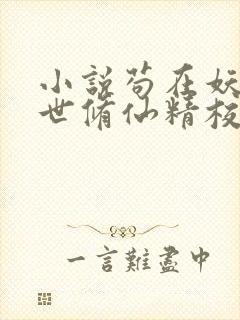 小說苟在妖
世脩仙精校
一言難盡中